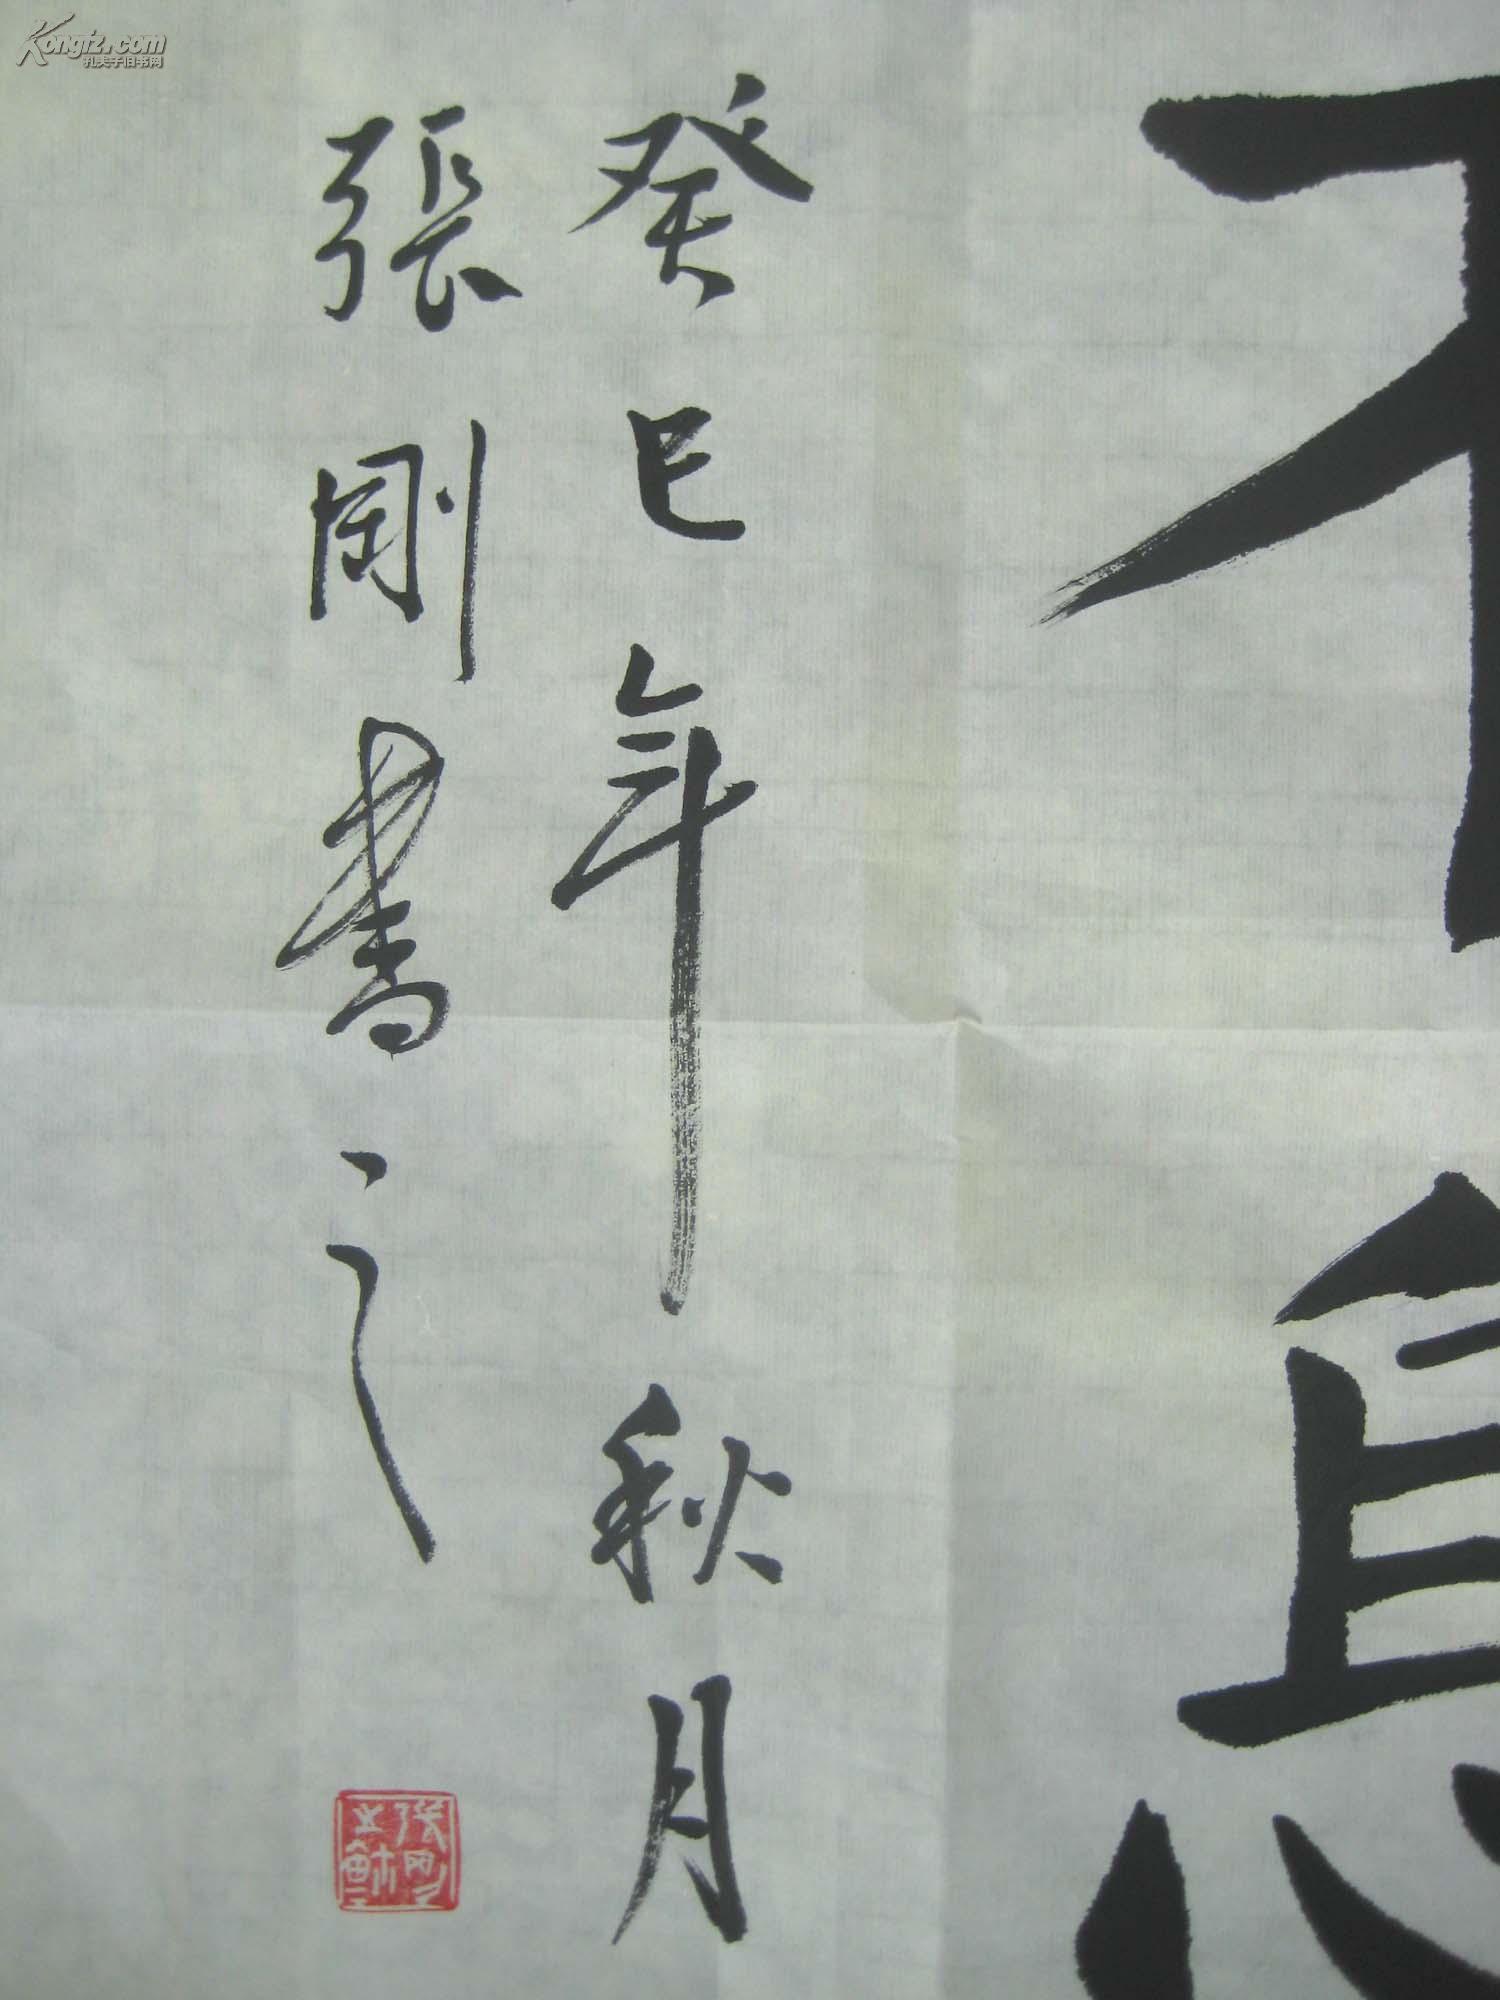 不息
癸巳年秋月
張剛書之
Kongfz.com
孔夫子旧书网